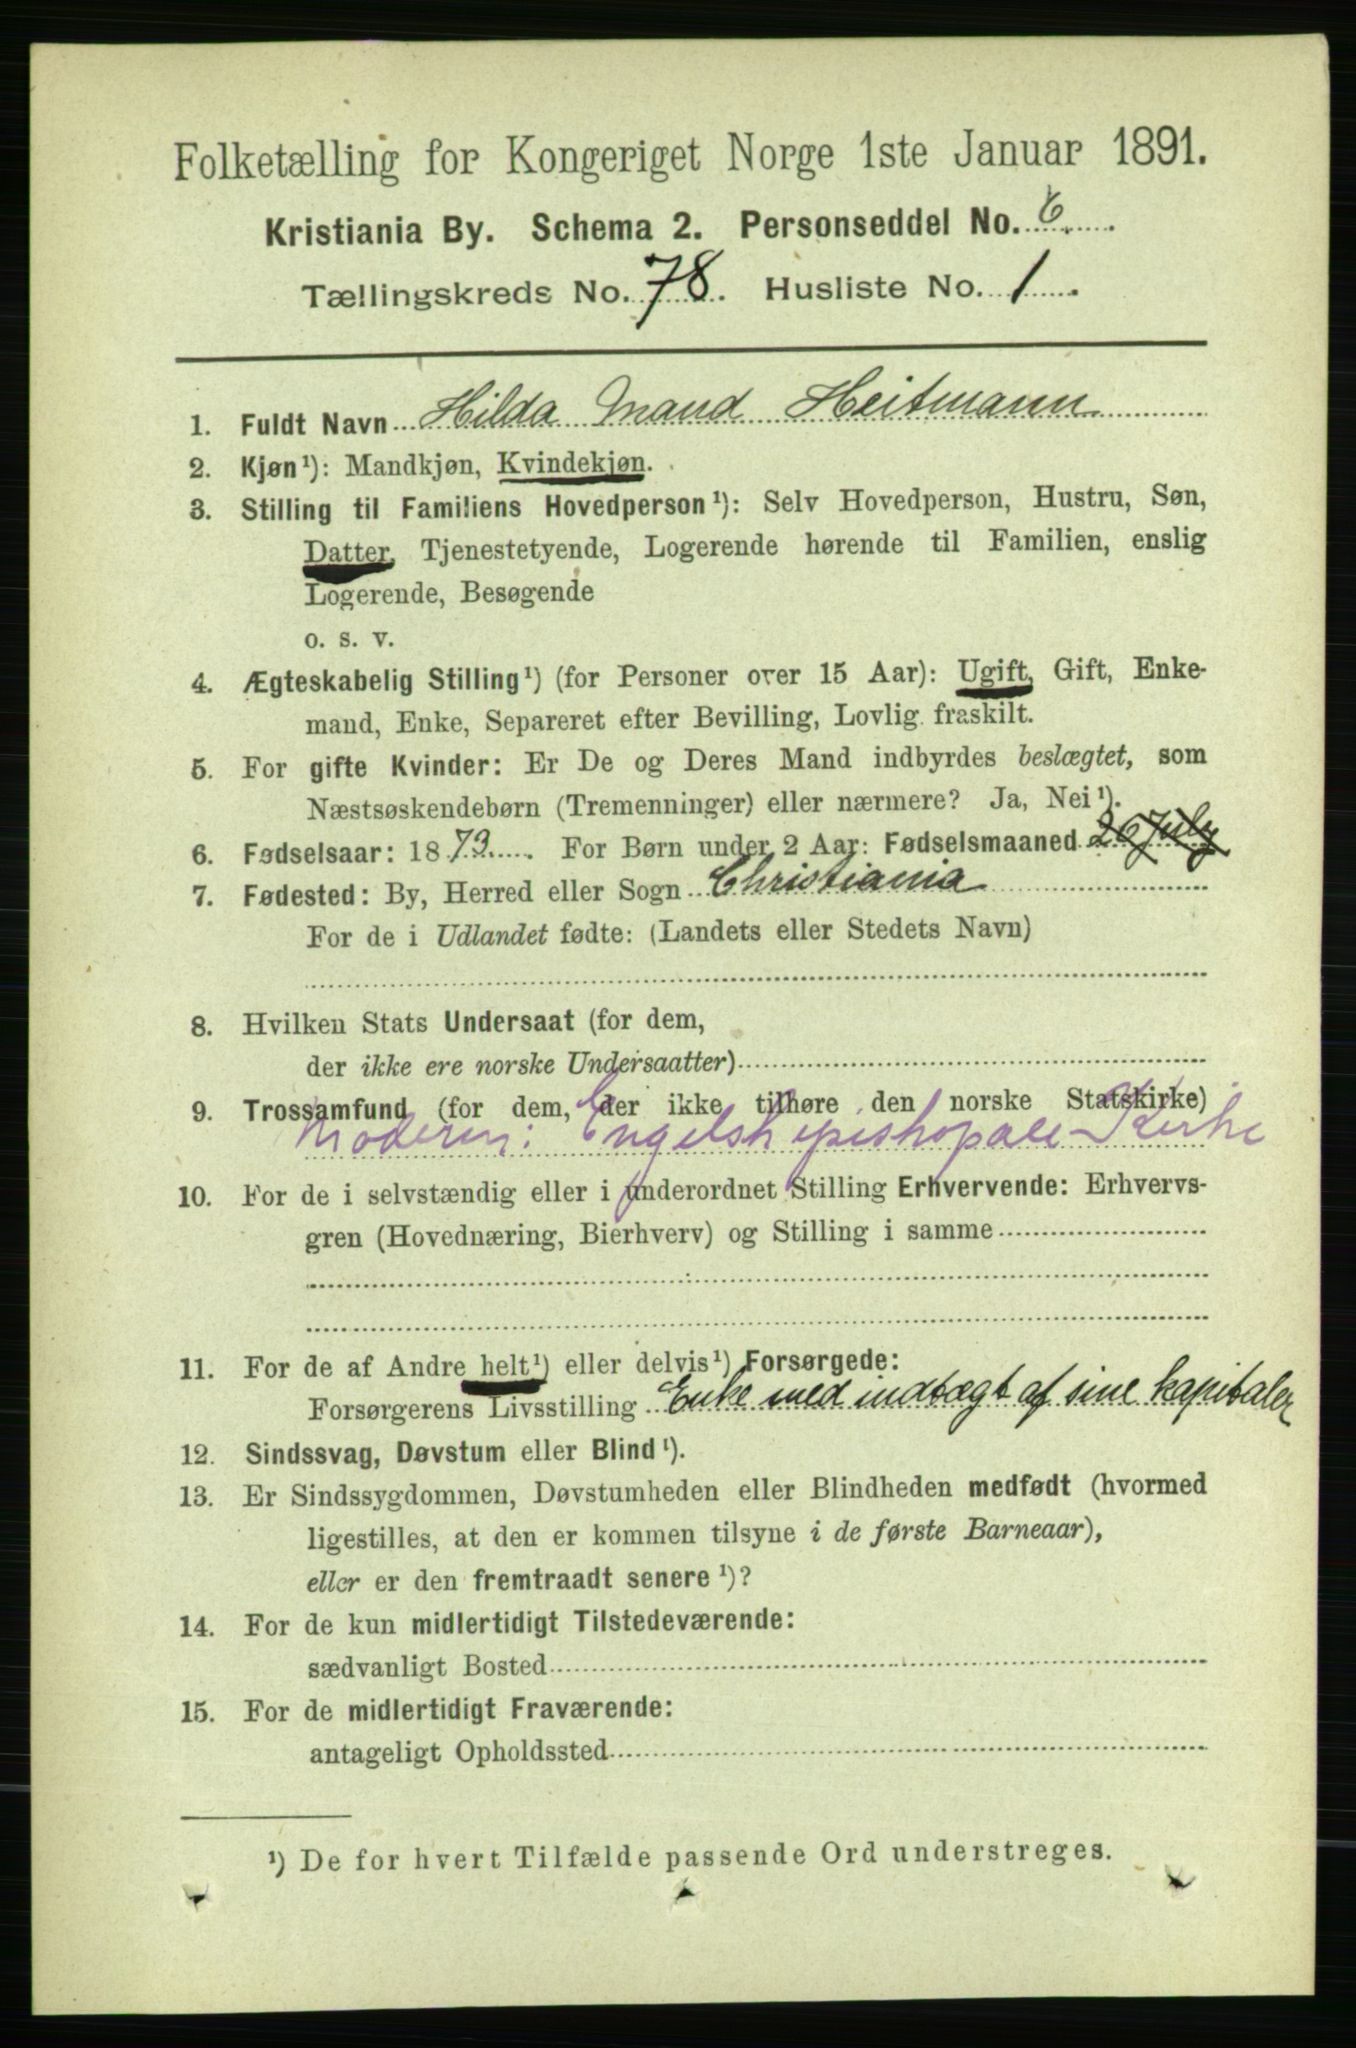 Folketælling for Kongeriget Norge 1ste Januar 1891.
Kristiania By. Schema 2. Personseddel No. 6.
Tællingskreds No. 78. Husliste No. 1.
1. Fuldt Navn Hilda Maud Heitmann
2. Kjøn¹): Mandkjøn, Kvindekjøn.
3. Stilling til Familiens Hovedperson¹): Selv Hovedperson, Hustru, Søn,
Datter, Tjenestetyende, Logerende hørende til Familien, enslig
Logerende, Besøgende
o. s. v.
4. Ægteskabelig Stilling¹) (for Personer over 15 Aar): Ugift, Gift, Enke-
mand, Enke, Separeret efter Bevilling, Lovlig fraskilt.
5. For gifte Kvinder: Er De og Deres Mand indbyrdes beslægtet, som
Næstsøskendebørn (Tremenninger) eller nærmere? Ja, Nei¹).
6. Fødselsaar: 1873. For Børn under 2 Aar: Fødselsmaaned 26 July
7. Fødested: By, Herred eller Sogn Christiania
For de i Udlandet fødte: (Landets eller Stedets Navn)
8. Hvilken Stats Undersaat (for dem,
der ikke ere norske Undersaatter)
9. Trossamfund (for dem, der ikke tilhøre den norske Statskirke)
Moderen: Engelsk episkopale Kirke
10. For de i selvstændig eller i underordnet Stilling Erhvervende: Erhvervs-
gren (Hovednæring, Bierhverv) og Stilling i samme
11. For de af Andre helt¹) eller delvis¹) Forsørgede:
Forsørgerens Livsstilling Enke med indtægt af sine kapitaler
12. Sindssvag, Døvstum eller Blind¹).
13. Er Sindssygdommen, Døvstumheden eller Blindheden medfødt (hvormed
ligestilles, at den er kommen tilsyne i de første Barneaar),
eller er den fremtraadt senere¹)?
14. For de kun midlertidigt Tilstedeværende:
sædvanligt Bosted
15. For de midlertidigt Fraværende:
antageligt Opholdssted
¹) De for hvert Tilfælde passende Ord understreges.